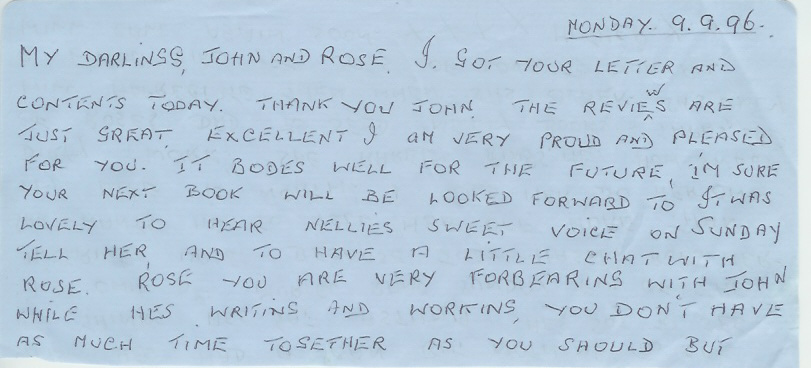 MONDAY. 9.9.96.
MY DARLINGS, JOHN AND ROSE. I. GOT YOUR LETTER AND
CONTENTS TODAY. THANK YOU JOHN. THE REVIEWS ARE
JUST GREAT, EXCELLENT I AM VERY PROUD AND PLEASED
FOR YOU. IT BODES WELL FOR THE FUTURE, I'M SURE
YOUR NEXT BOOK WILL BE LOOKED FORWARD TO IT WAS
LOVELY TO HEAR NELLIES SWEET VOICE ON SUNDAY
TELL HER, AND TO HAVE A LITTLE CHAT WITH
ROSE. ROSE YOU ARE VERY FORBEARING WITH JOHN
WHILE HES WRITING AND WORKING, YOU DON'T HAVE
AS MUCH TIME TOGETHER AS YOU SHOULD BUT